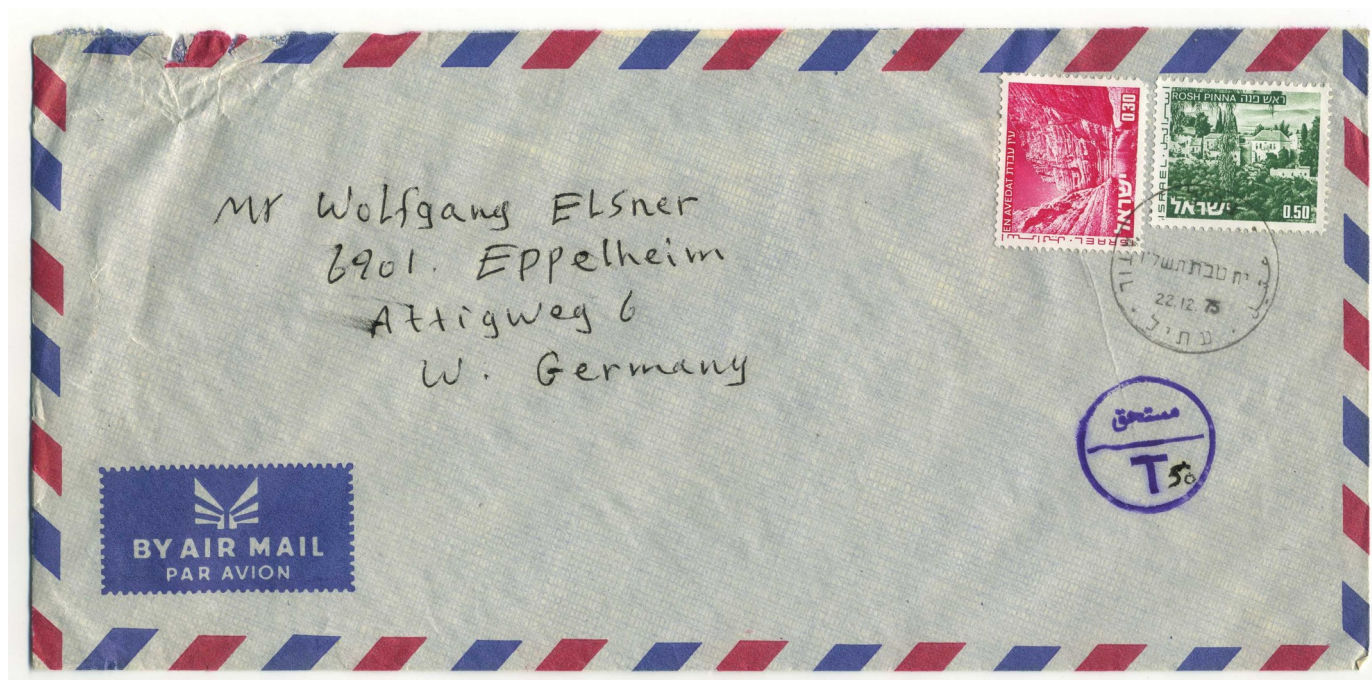 Mr Wolfgang Elsner
6901. Eppelheim
Attigweg 6
W. Germany
0.30
עין עבדת EN AVEDAT
ישראל
ISRAEL
ROSH PINNA ראש פנה
ISRAEL
ישראל
0.50
טבת תשל"ו
22.12.75
עתיל
مستحق
T 50
BY AIR MAIL
PAR AVION